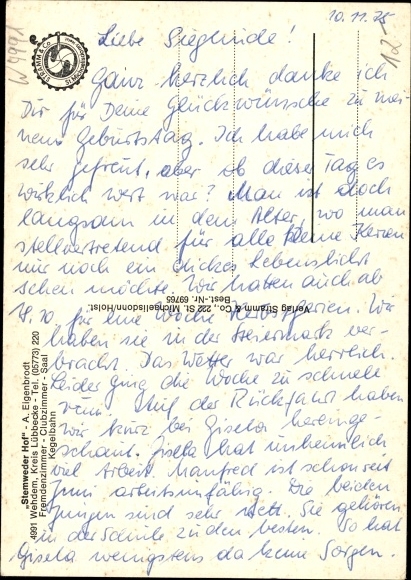 10.11.75
Liebe Sieglinde!
Ganz herzlich danke ich
Dir für Deine Glückwünsche zu mei-
nem Geburtstag. Ich habe mich
sehr gefreut, aber ob dieser Tag es
wirklich wert war? Man ist doch
langsam in dem Alter, wo man
stellvertretend für alle Kerzen
nur noch ein dickes Lebenslicht
sehen möchte. Wir haben auch ab
18.10 für eine Woche Ferien. Wir
haben sie in der Steiermark ver-
bracht. Das Wetter war herrlich.
Leider ging die Woche zu schnell
rum. Auf der Rückfahrt haben
wir kurz bei Gisela hereinge-
schaut. Gisela hat unheimlich
viel Arbeit. Manfred ist schon seit
Juni arbeitsunfähig. Die beiden
Jungen sind sehr nett. Sie gehören
in der Schule zu den besten. So hat
Gisela wenigstens da keine Sorgen.
"Stemweder Hof" - A. Eigenbrodt
4991 Wehdem, Kreis Lübbecke - Tel. (05773) 220
Fremdenzimmer - Clubzimmer - Saal
Kegelbahn
Verlag Stramm & Co., 222 St. Michaelisdonn/Holst.
Best.-Nr. 69765
STRAMM & Co
W 4991
12-